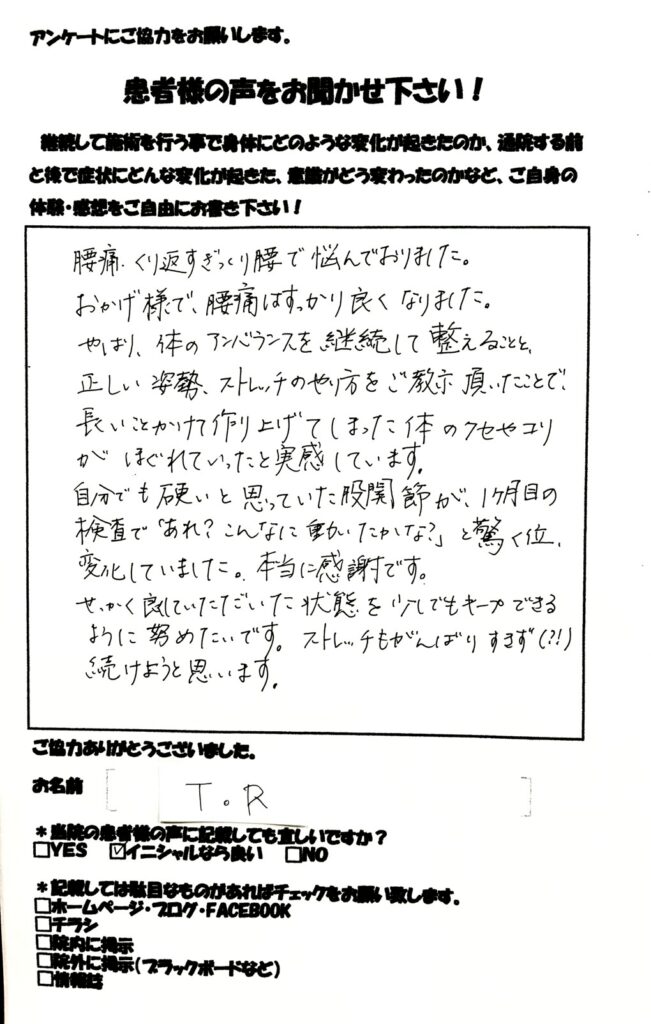 アンケートにご協力をお願いします。
患者様の声をお聞かせ下さい！
継続して施術を行う事で身体にどのような変化が起きたのか、通院する前
と後で症状にどんな変化が起きた、意識がどう変わったのかなど、ご自身の
体験・感想をご自由にお書き下さい！
腰痛、くり返すぎっくり腰で悩んでおりました。
おかげ様で、腰痛はすっかり良くなりました。
やはり、体のアンバランスを継続して整えることと、
正しい姿勢、ストレッチのやり方をご教示頂いたことで、
長いことかけて作り上げてしまった体のクセやコリ
がほぐれていったと実感しています。
自分でも硬いと思っていた股関節が、1ヶ月目の
検査で「あれ？こんなに動いたかな？」と驚く位、
変化していました。本当に感謝です。
せっかく良くしていただいた状態を少しでもキープできる
ように努めたいです。ストレッチもがんばりすぎず(?!)
続けようと思います。
ご協力ありがとうございました。
お名前 T.R
＊当院の患者様の声に記載しても宜しいですか？
□YES ☑イニシャルなら良い □NO
＊記載しては駄目なものがあればチェックをお願い致します。
□ホームページ・ブログ・FACEBOOK
□チラシ
□院内に掲示
□院外に掲示（ブラックボードなど）
□情報誌